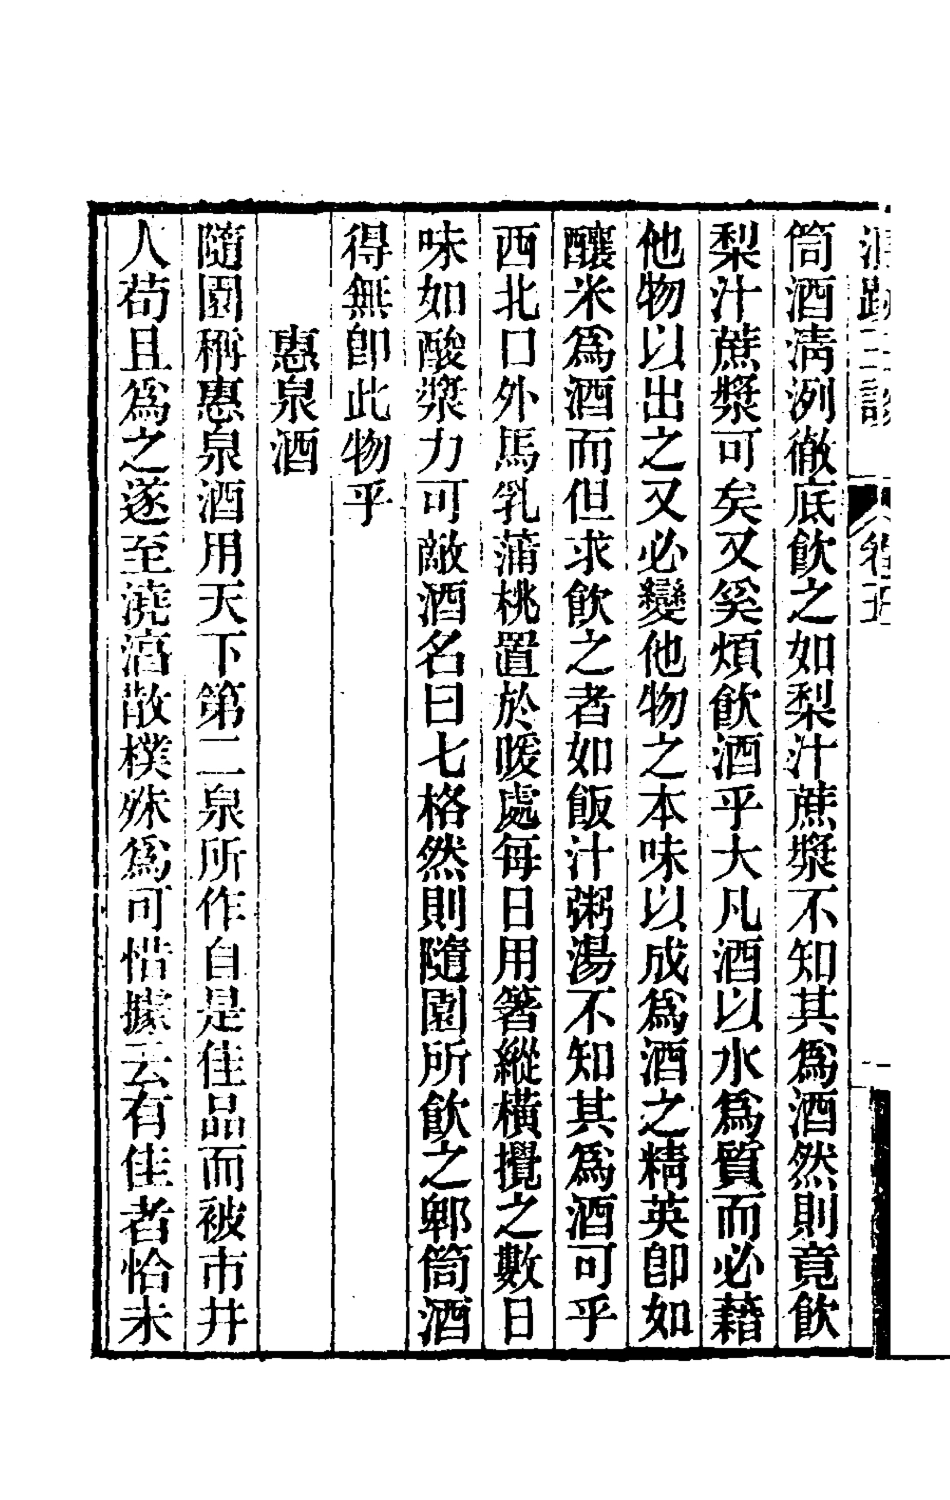 筒酒淸洌徹底飮之如梨汁蔗漿不知其爲酒然則竟飮
梨汁蔗漿可矣又奚煩飮酒乎大凡酒以水爲質而必藉
他物以出之又必變他物之本味以成爲酒之精英卽如
釀米爲酒而但求飮之者如飯汁粥湯不知其爲酒可乎
西北口外馬乳蒲桃置於暖處每日用箸縱橫攪之數日
味如酸漿力可敵酒名曰七格然則隨園所飮之郫筒酒
得無卽此物乎
惠泉酒
隨園稱惠泉酒用天下第二泉所作自是佳品而被市井
人苟且爲之遂至澆湻散樸殊爲可惜據云有佳者恰未